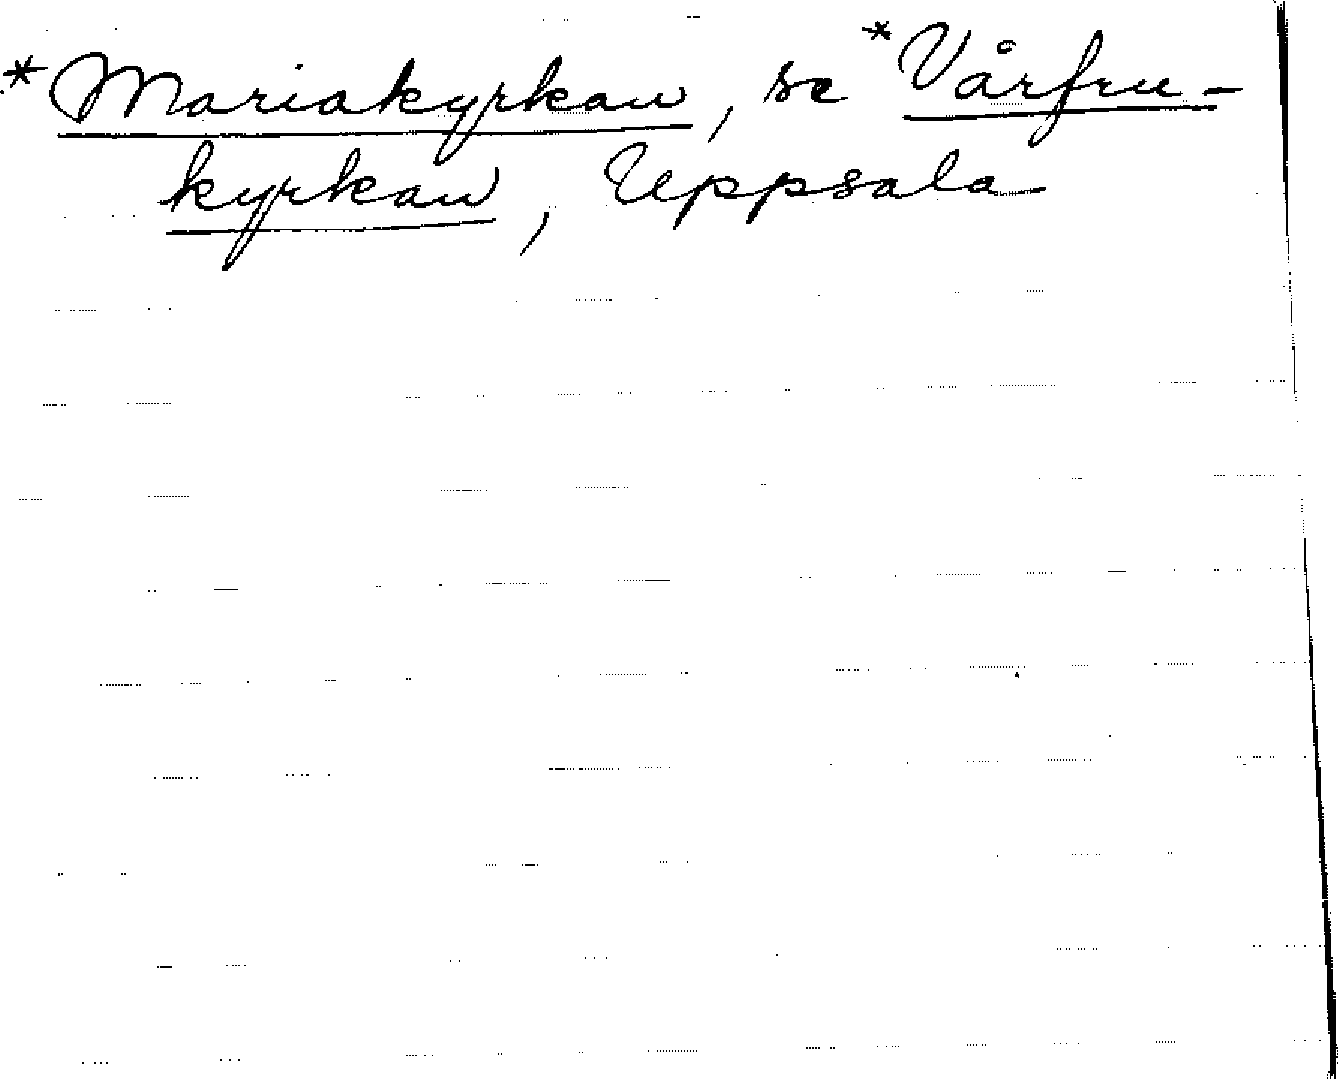 *Mariakyrkan, se *Vårfru-
kyrkan, Uppsala